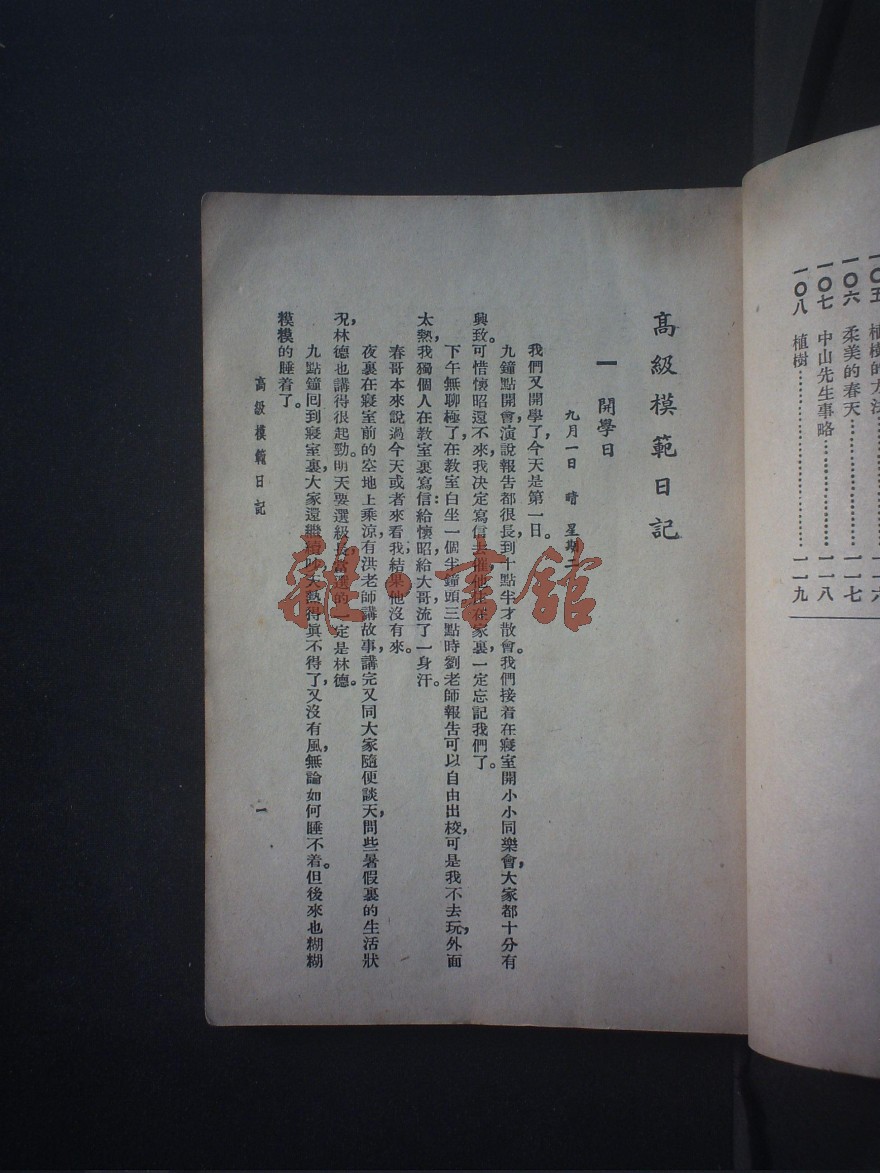 一〇五 植樹的方法……一一六
一〇六 柔美的春天……一一七
一〇七 中山先生事略……一一八
一〇八 植樹……一一九
高級模範日記
一 開學日
九月一日 晴 星期二
我們又開學了，今天是第一日。
九鐘點開會，演說報告都很長，到十點半才散會。我們接着在寢室開小小同樂會，大家都十分有
興致。可惜懷昭還不來，我決定寫信去催他，住在家裏，一定忘記我們了。
下午無聊極了，在教室白坐一個半鐘頭，三點時劉老師報告可以自由出校，可是我不去玩，外面
太熱，我獨個人在教室裏寫信：給懷昭，給大哥，流了一身汗。
春哥本來說過今天或者來看我，結果他沒有來。
夜裏在寢室前的空地上乘涼，有洪老師講故事，講完又同大家隨便談天，問些暑假裏的生活狀
況，林德也講得很起勁。明天要選級長，當選的一定是林德。
九點鐘回到寢室裏，大家還繼續吵，天熱得眞不得了，又沒有風，無論如何睡不着。但後來也糊糊
糢糢的睡着了。
高級模範日記
一
雜·書館